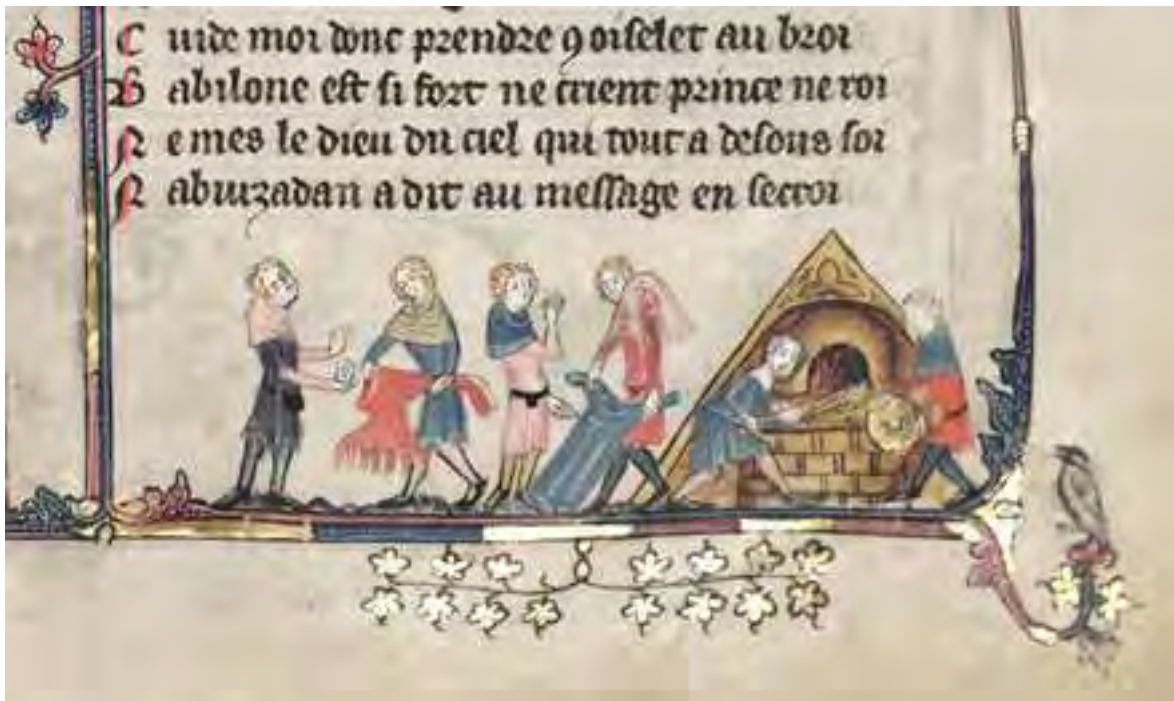 C uide moi donc prendre 9 oiselet au broi
B abilone est si fort ne crient prince ne roi
N e mes le dieu du ciel qui tout a desous soi
N abuizadan a dit au message en secroi